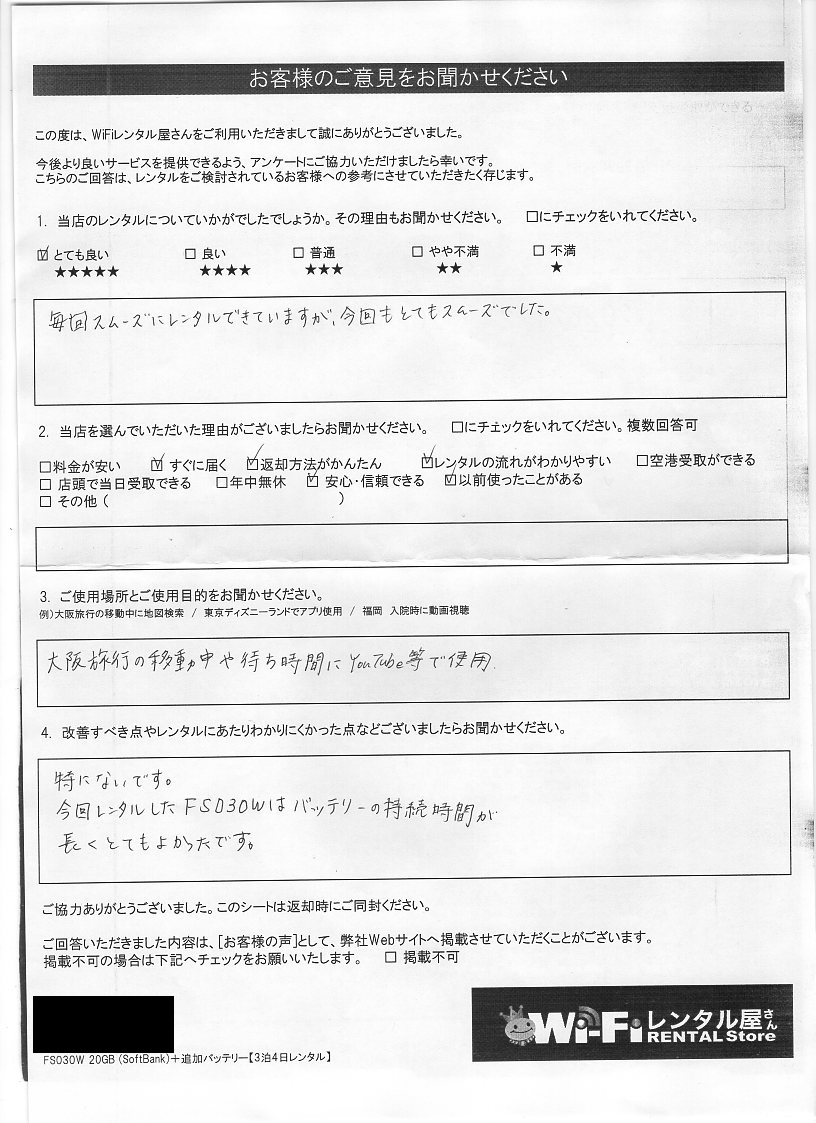 お客様のご意見をお聞かせください
この度は、WiFiレンタル屋さんをご利用いただきまして誠にありがとうございました。
今後より良いサービスを提供できるよう、アンケートにご協力いただけましたら幸いです。
こちらのご回答は、レンタルをご検討されているお客様への参考にさせていただきたく存じます。
1. 当店のレンタルについていかがでしたでしょうか。その理由もお聞かせください。 □にチェックをいれてください。
☑ とても良い □ 良い □ 普通 □ やや不満 □ 不満
★★★★★ ★★★★ ★★★ ★★ ★
毎回スムーズにレンタルできていますが、今回もとてもスムーズでした。
2. 当店を選んでいただいた理由がございましたらお聞かせください。 □にチェックをいれてください。複数回答可
□料金が安い ☑ すぐに届く ☑返却方法がかんたん ☑レンタルの流れがわかりやすい □空港受取ができる
□ 店頭で当日受取できる □年中無休 ☑ 安心・信頼できる ☑以前使ったことがある
□ その他 ( )
3. ご使用場所とご使用目的をお聞かせください。
例)大阪旅行の移動中に地図検索 / 東京ディズニーランドでアプリ使用 / 福岡 入院時に動画視聴
大阪旅行の移動中や待ち時間にYouTube等で使用.
4. 改善すべき点やレンタルにあたりわかりにくかった点などございましたらお聞かせください。
特にないです。
今回レンタルしたFS030Wはバッテリーの持続時間が
長くとてもよかったです。
ご協力ありがとうございました。このシートは返却時にご同封ください。
ご回答いただきました内容は、[お客様の声]として、弊社Webサイトへ掲載させていただくことがございます。
掲載不可の場合は下記へチェックをお願いいたします。 □ 掲載不可
WiFiレンタル屋さん
RENTAL Store
FS030W 20GB (SoftBank)+追加バッテリー【3泊4日レンタル】